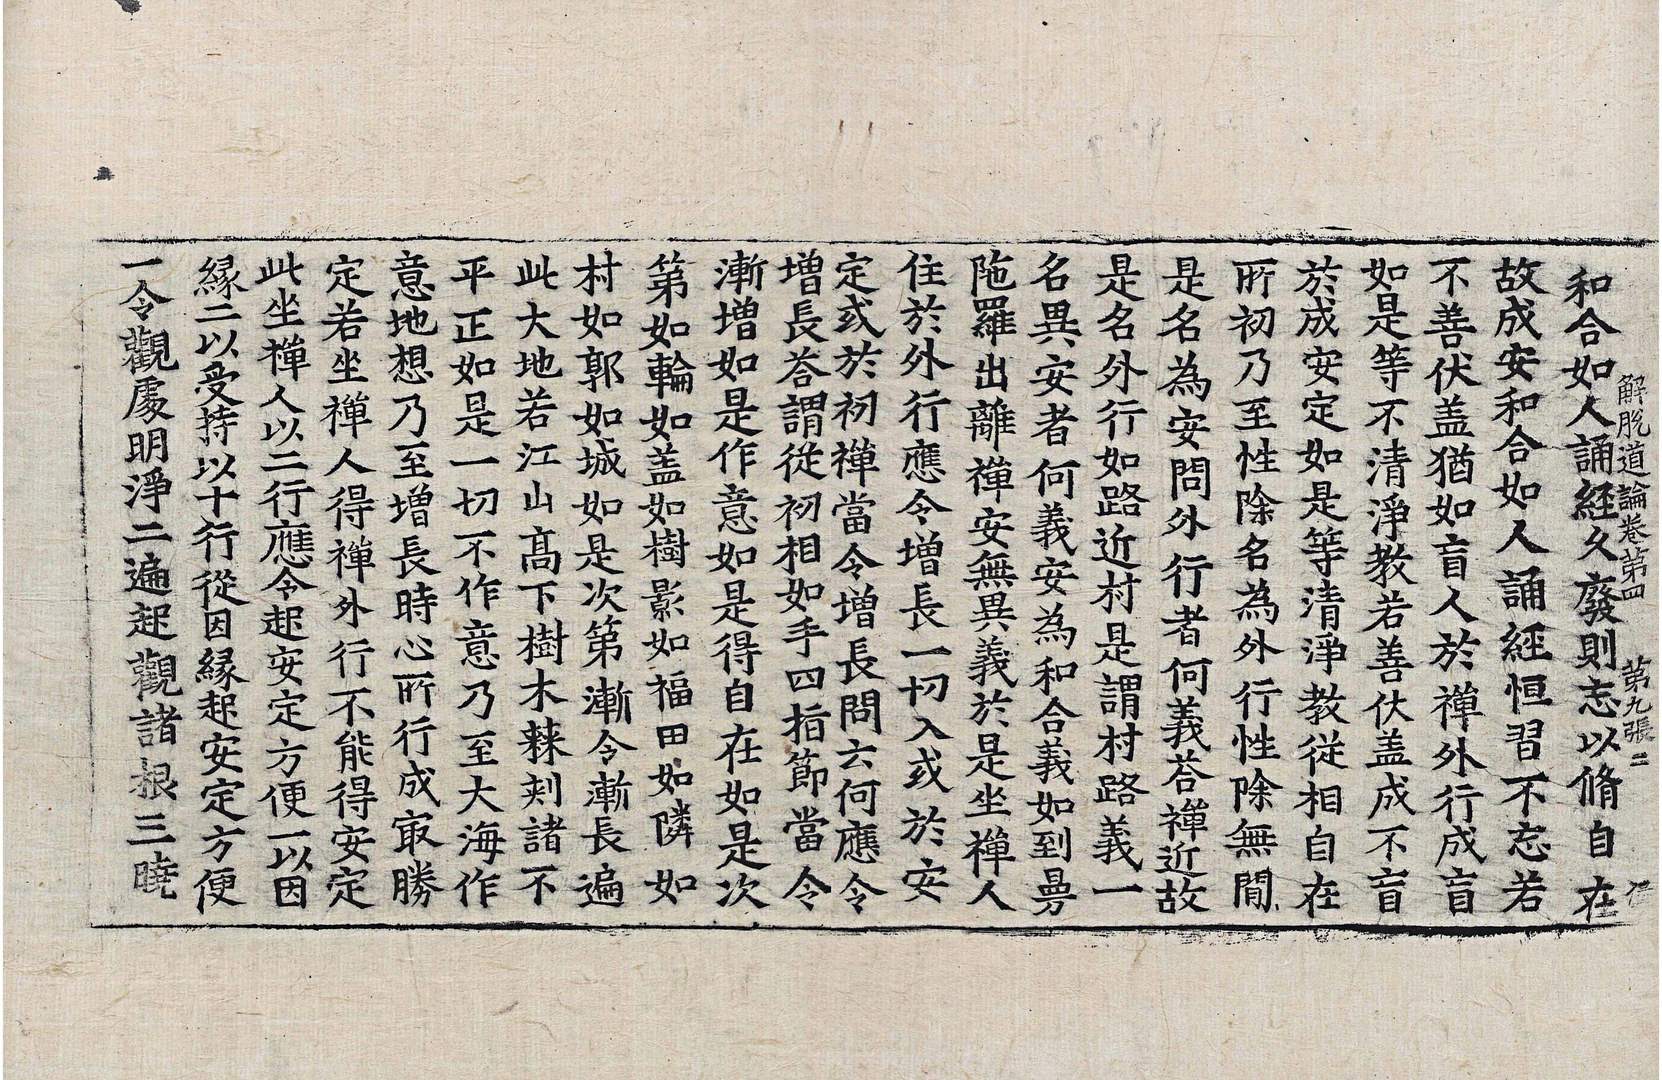 解脫道論卷第四　第九張二
和合如人誦經久廢則忘以脩自在
故成安和合如人誦經恒習不忘若
不善伏盖猶如盲人於禪外行成盲
如是等不清淨教若善伏盖成不盲
於成安定如是等清淨教從相自在
所初乃至性除名為外行性除無間
是名為安問外行者何義荅禪近故
是名外行如路近村是謂村路義一
名異安者何義安為和合義如到曼
陁羅出離禪安無異義於是坐禪人
住於外行應令增長一切入或於安
定或於初禪當令增長問云何應令
增長荅謂從初相如手四指節當令
漸增如是作意如是得自在如是次
第如輪如盖如樹影如福田如隣如
村如郭如城如是次第漸令漸長遍
此大地若江山髙下樹木棘刾諸不
平正如是一切不作意乃至大海作
意地想乃至增長時心所行成㝡勝
定若坐禪人得禪外行不能得安定
此坐禪人以二行應令起安定方便一以因
緣二以受持以十行從因緣起安定方便
一令觀處明淨二遍起觀諸根三曉